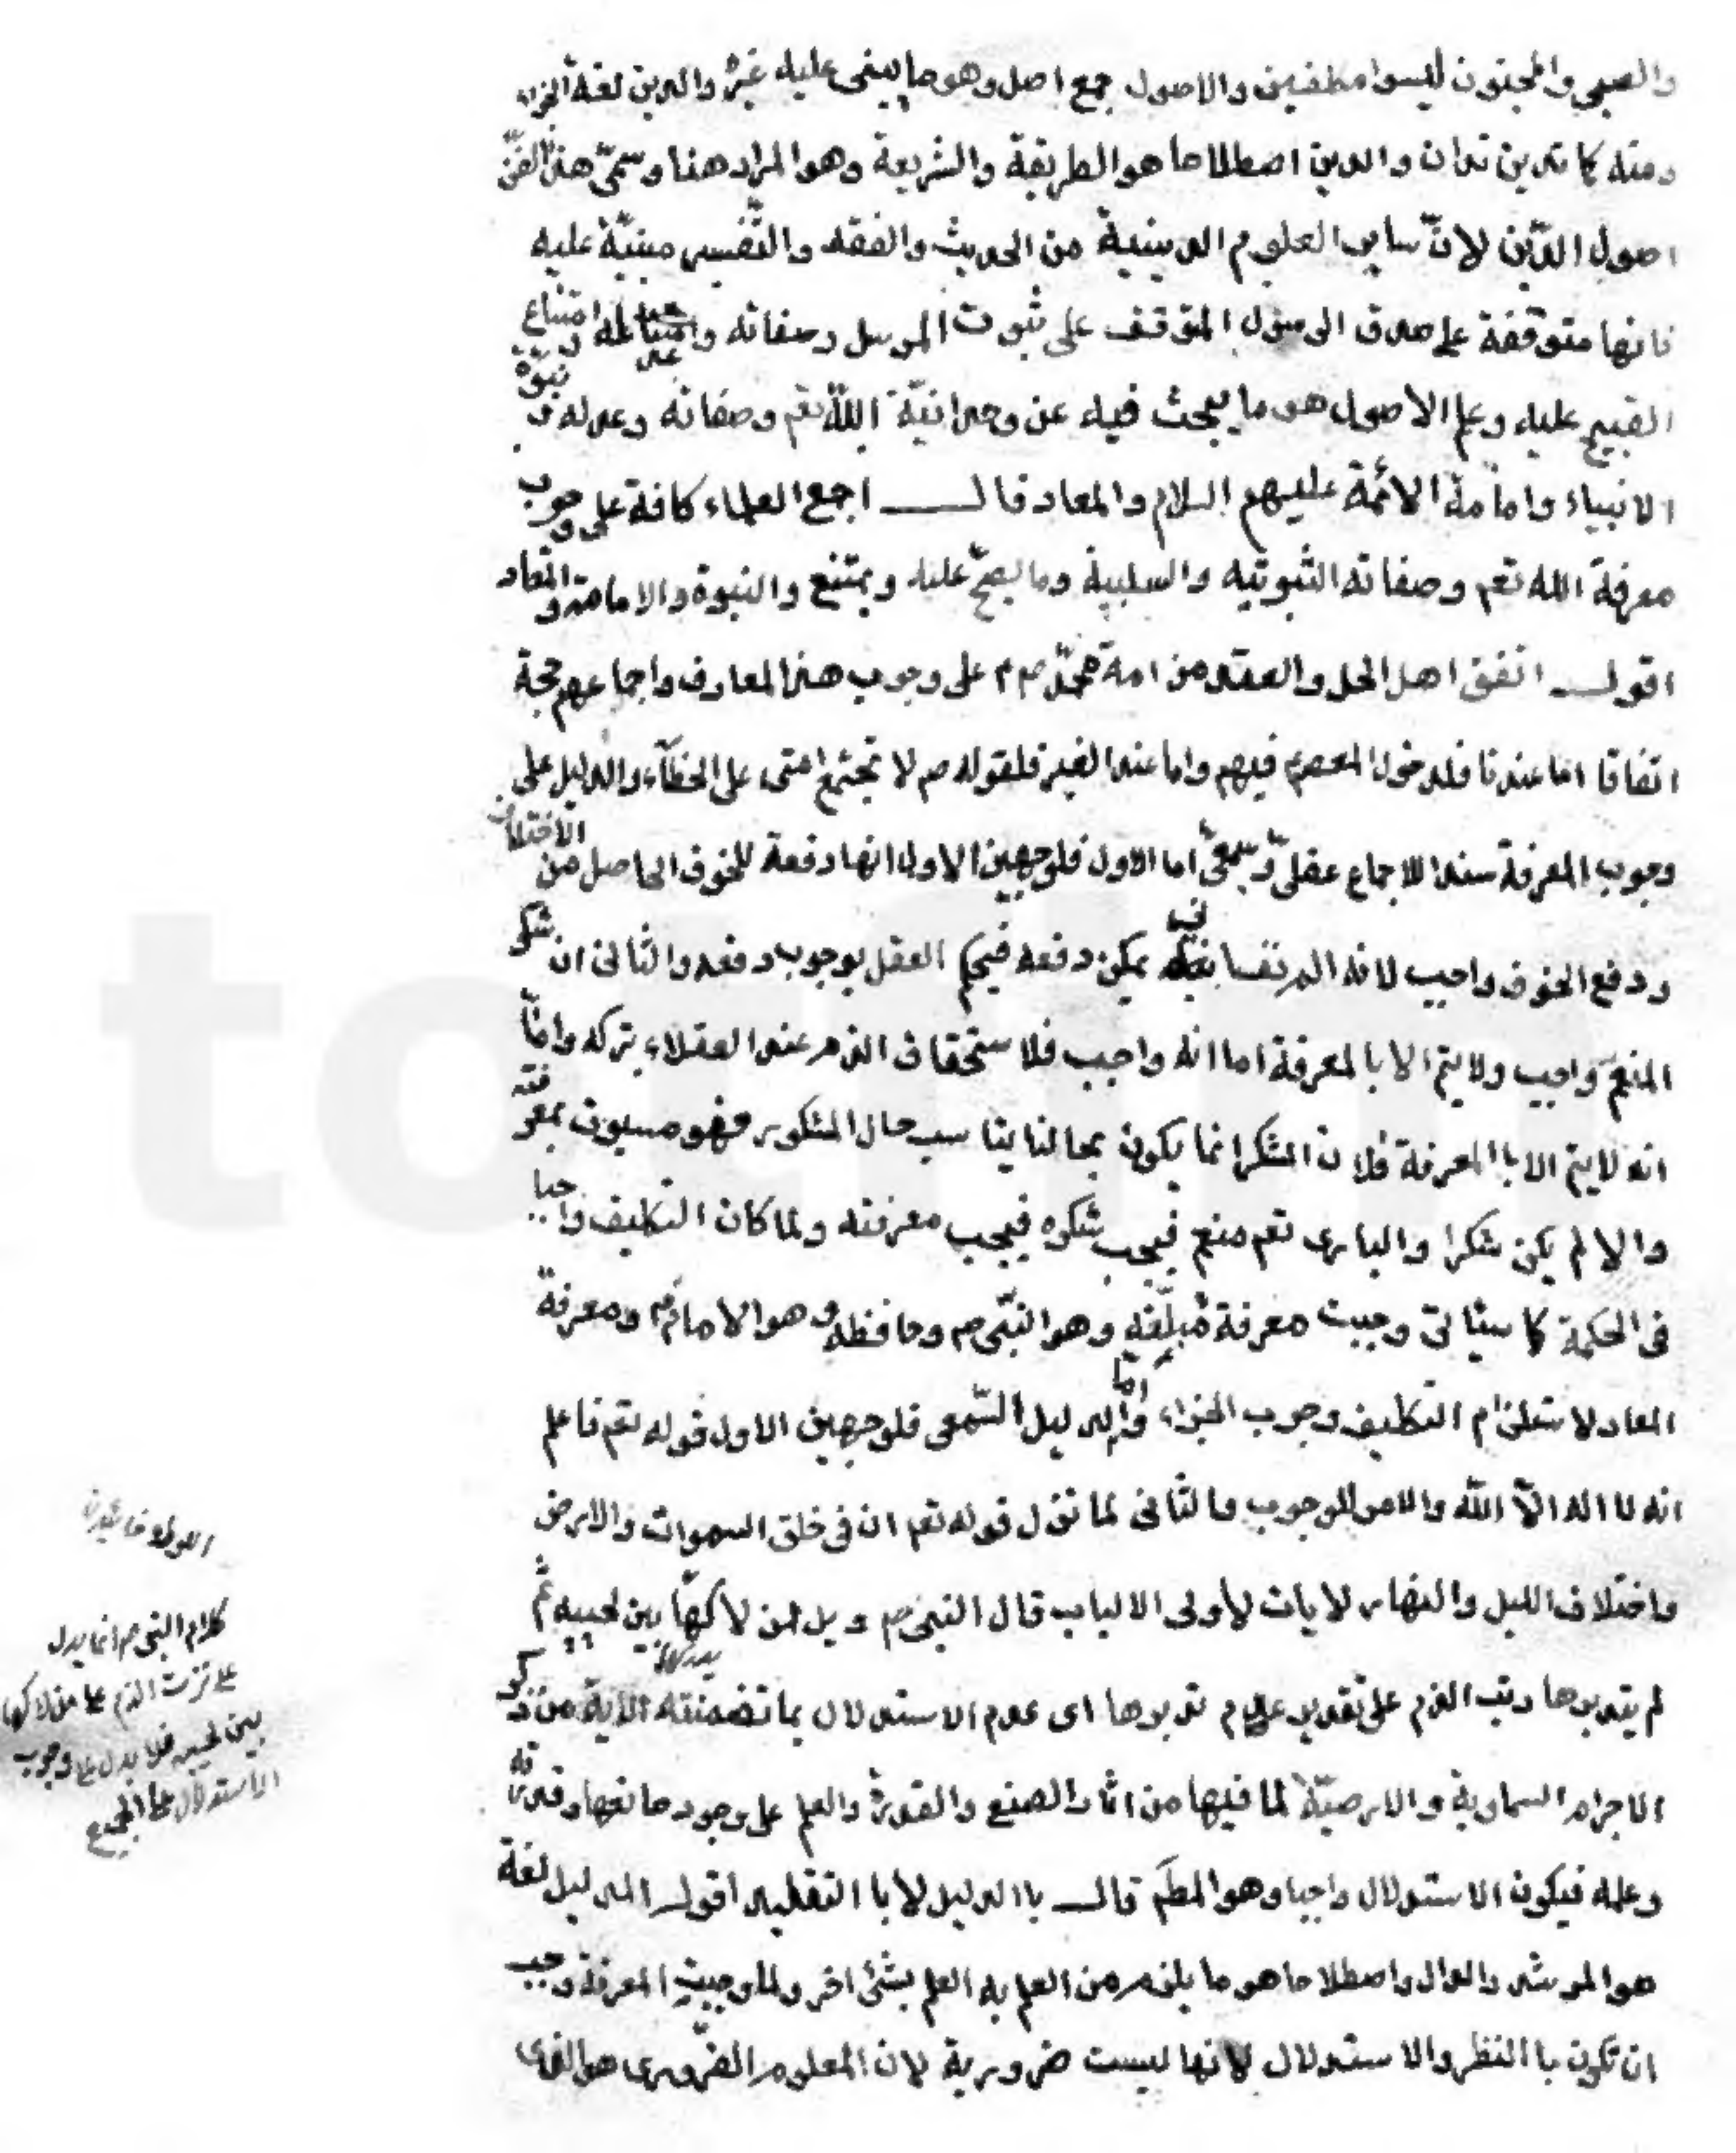 والصبي والمجنون ليسوا مكلفين والاصول جمع اصل وهو ما يبنى عليه غيره والدين لغة الجزاء
ومنه كما تدين تدان والدين اصطلاحا هو الطريقة والشريعة وهو المراد هنا وسمّى هذا الفنّ
اصول الدّين لانّ ساير العلوم الدينية من الحديث والفقه والتّفسير مبنيّة عليه
فانها متوقّفة على صدق الرسول المتوقف على ثبوت المرسل وصفاته وعدله وامتناع
القبيح عليه وعلم الاصول هو ما يبحث فيه عن وحدانيّة اللّه تعم وصفاته وعدله ونبوّة
الانبياء وامامة الائمّة عليهم السلام والمعاد قال اجمع العلماء كافة على وجوب
معرفة الله تعم وصفاته الثبوتيه والسلبية وما يصحّ عليه ويمتنع والنبوة والامامة والمعاد
اقول اتفق اهل الحل والعقد من امة محمّد صم على وجوب هذه المعارف واجماعهم حجة
اتفاقا اما عندنا فلدخول المعصوم فيهم واما عند الغير فلقوله صم لا تجتمع امتى على الخطآء والدليل على
وجوب المعرفة سند الاجماع عقلىّ وسمعىّ اما الاول فلوجهين الاول انها دفعة للخوف الحاصل من الاختلاف
ودفع الخوف واجب لانه الم نفسانى يمكن دفعه فيحكم العقل بوجوب دفعه والثانى ان شكر
المنعم واجب ولا يتم الا بالمعرفة اما انه واجب فلاستحقاق الذم عند العقلاء بتركه وامّا
انه لا يتم الا باالمعرفة فلان الشكر انما يكون بما يناسب حال المشكور فهو مسبوق بمعرفته
والا لم يكن شكرا والبارى تعم منعم فيجب شكره فيجب معرفته ولما كان التكليف واجبا
فى الحكمة كما سيأتى وجبت معرفة مبلّغه وهو النبّى صم وحافظه وهو الامام ع ومعرفة
المعاد لاستلزام التكليف وجوب الجزاء وامّا الدليل السّمعى فلوجهين الاول قوله تعم فاعلم
انه لا اله الّا اللّه والامر للوجوب والثانى لما نزل قوله تعم ان فى خلق السموات والارض
واختلاف الليل والنهار لايات لأولى الالباب قال النبى صم ويل لمن لاكها بين لحييه ثمّ
لم يتدبرها رتب الذم على تقدير عدم تدبرها اى عدم الاستدلال بما تضمنته الآية من ذكر
الاجرام السماوية والارضيّة لما فيها من اثار الصنع والقدرة والعلم على وجود صانعها وقدرته
وعلمه فيكون الاستدلال واجبا وهو المطم قال باالدليل لا باالتقليد اقول الدليل لغة
هو المرشد والدال واصطلاحا هو ما يلزم من العلم به العلم بشئ اخر ولما وجبت المعرفة وجب
ان تكون باالنظر والاستدلال لانها ليست ضرورية لان المعلوم الضّرورى هو الذى
كلام النبى صم انما يدل
على ترتب الذم على من لاكها
بين لحييه فلا يدل على وجوب
الاستدلال على الجميع